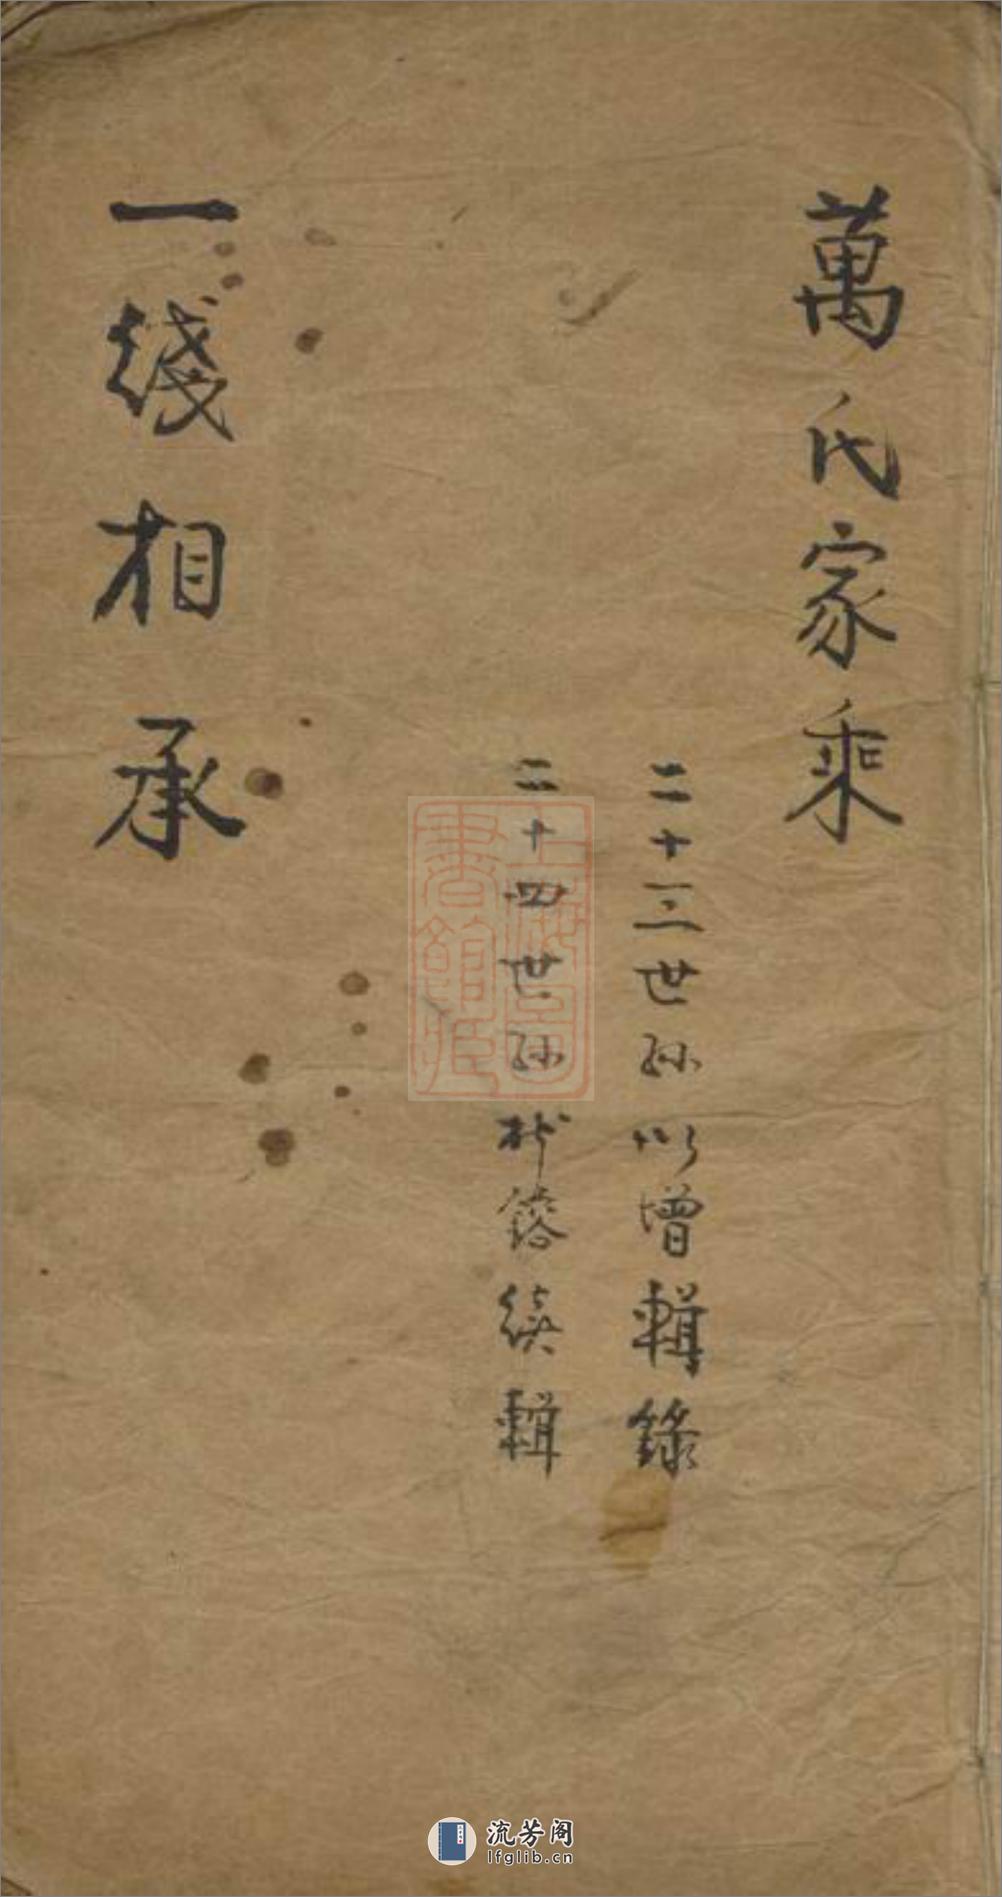 萬氏家乘
二十三世孫以增輯錄
二十四世孫 續輯
一綫相承
上海圖書館藏
流芳阁
lfglib.cn